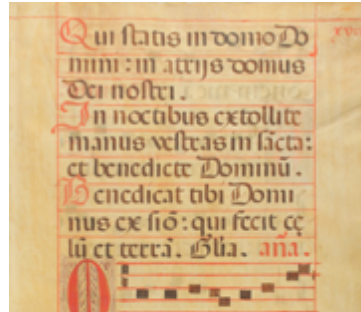 Qui statis in domo Do
mini : in atrijs domus
Dei nostri .
In noctibus extollite
manus vestras in sācta :
et benedicte Dominū .
Benedicat tibi Domi
nus ex siō : qui fecit cę
lū et terrā . Glīa . aña .